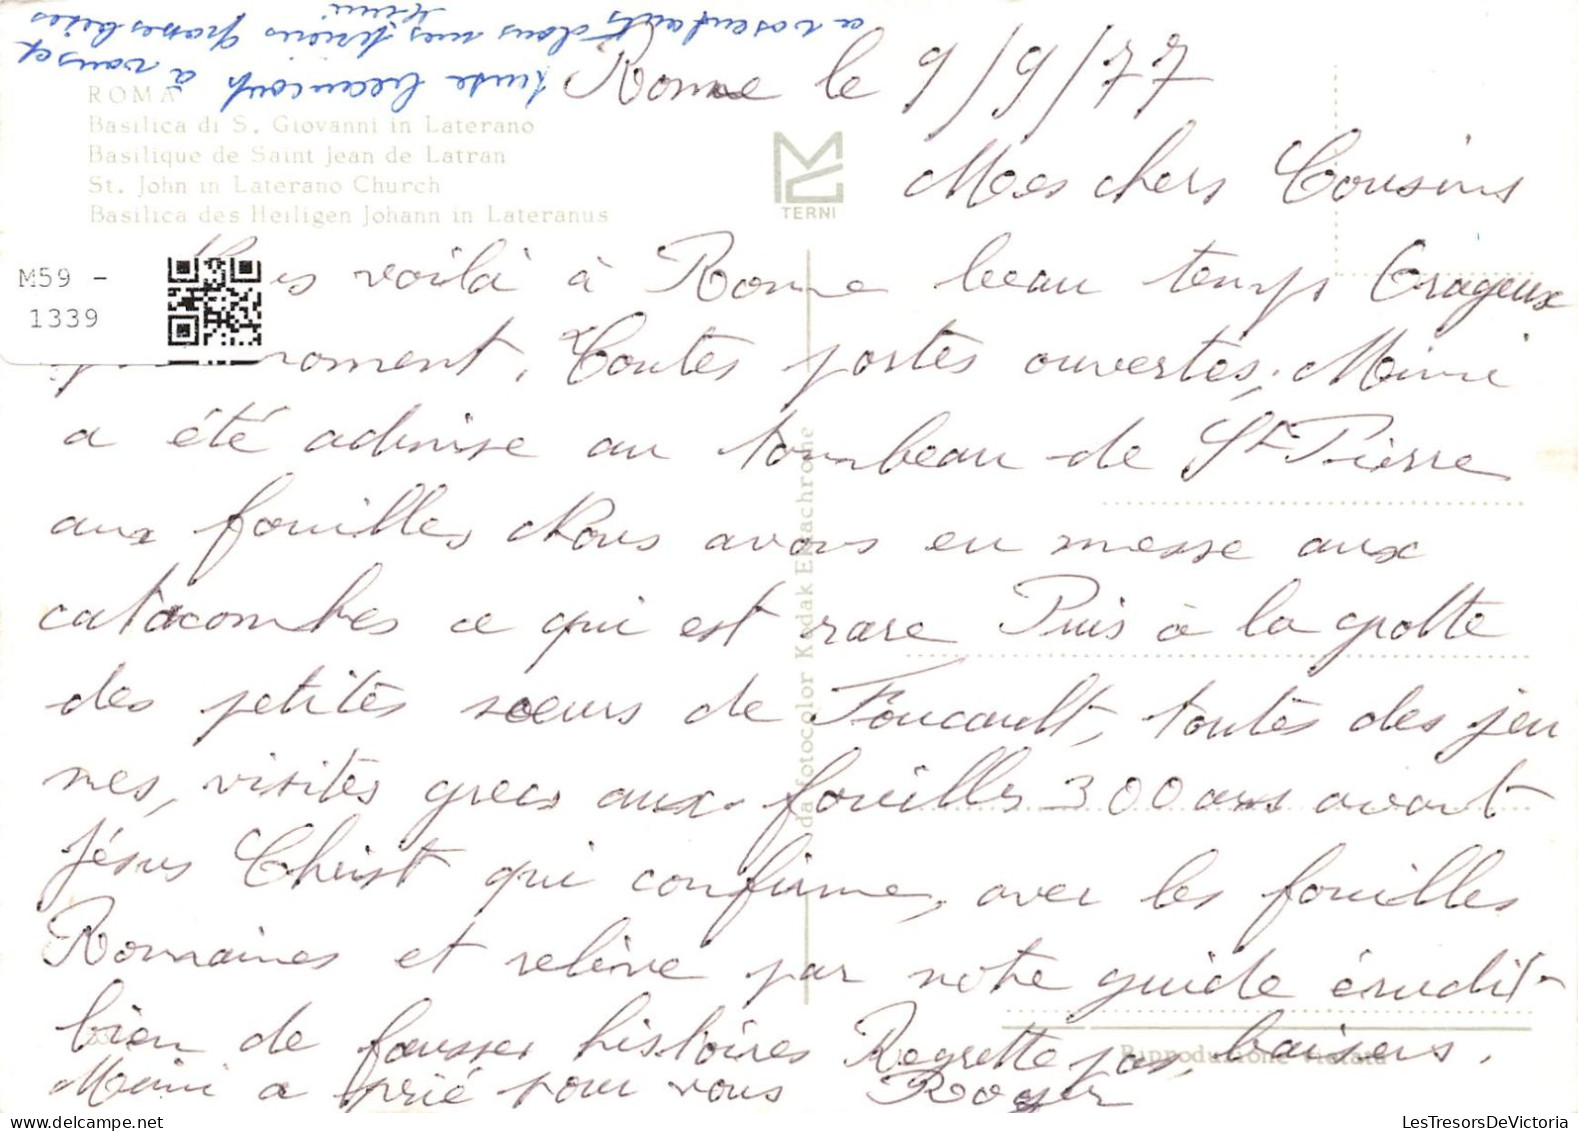 Rome le 9/9/77
ROMA
Basilica di S. Giovanni in Laterano
Basilique de Saint Jean de Latran
St. John in Laterano Church
Basilica des Heiligen Johann in Lateranus
TERNI
M59 -
1339
Mes chers Cousins
voilà à Rome beau temps Orageux
moment. Toutes portes ouvertes, Mimi
a été admise au tombeau de St Pierre
aux fouilles Nous avons eu messe aux
catacombes ce qui est rare Puis à la grotte
des petites sœurs de Foucault, toutes des jeu
nes, visites grecs aux fouilles 300 ans avant
Jésus Christ qui confirme, avec les fouilles
Romaines et relève par notre guide érudit
bien de fausses histoires Regrette pas, baisers.
Mimi a prié pour vous Roger
pense beaucoup à vous et
a vos enfants dans mes prières grosses bises
Mimi
da fotocolor Kodak Ektachrome
Riproduzione vietata
LesTresorsDeVictoria.com